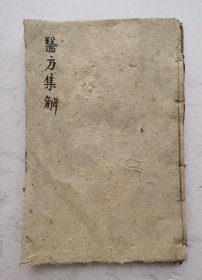 醫方集解